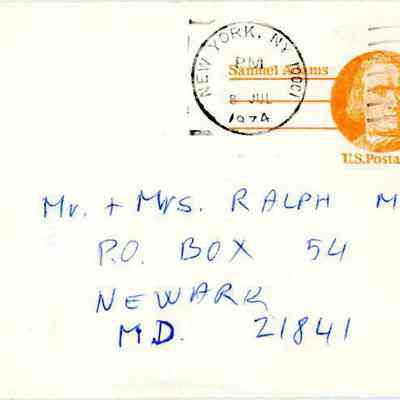 NEW YORK, NY 10001
PM
8 JUL
1974
Samuel Adams
U.S. Posta
Mr. + Mrs. RALPH M
P.O. BOX 54
NEWARK
M.D. 21841